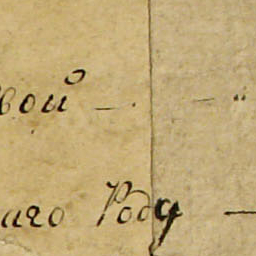 вой — . — "
аго Роду —